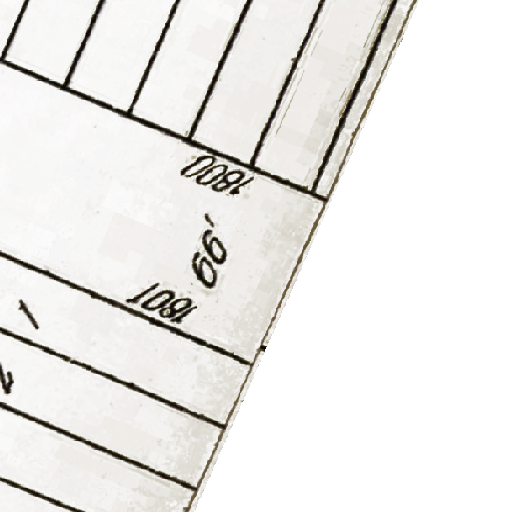 1800
66'
1801
1
2